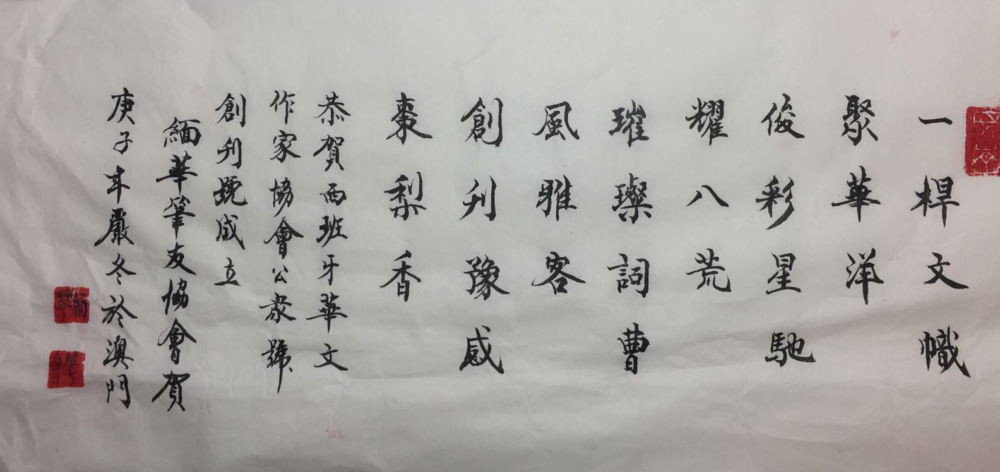 一桿文幟
聚華洋
俊彩星馳
耀八荒
璀璨詞曹
風雅客
創刊豫感
棗梨香
恭賀西班牙華文
作家協會公衆號
創刊號成立
緬華筆友協會賀
庚子年嚴冬於澳門